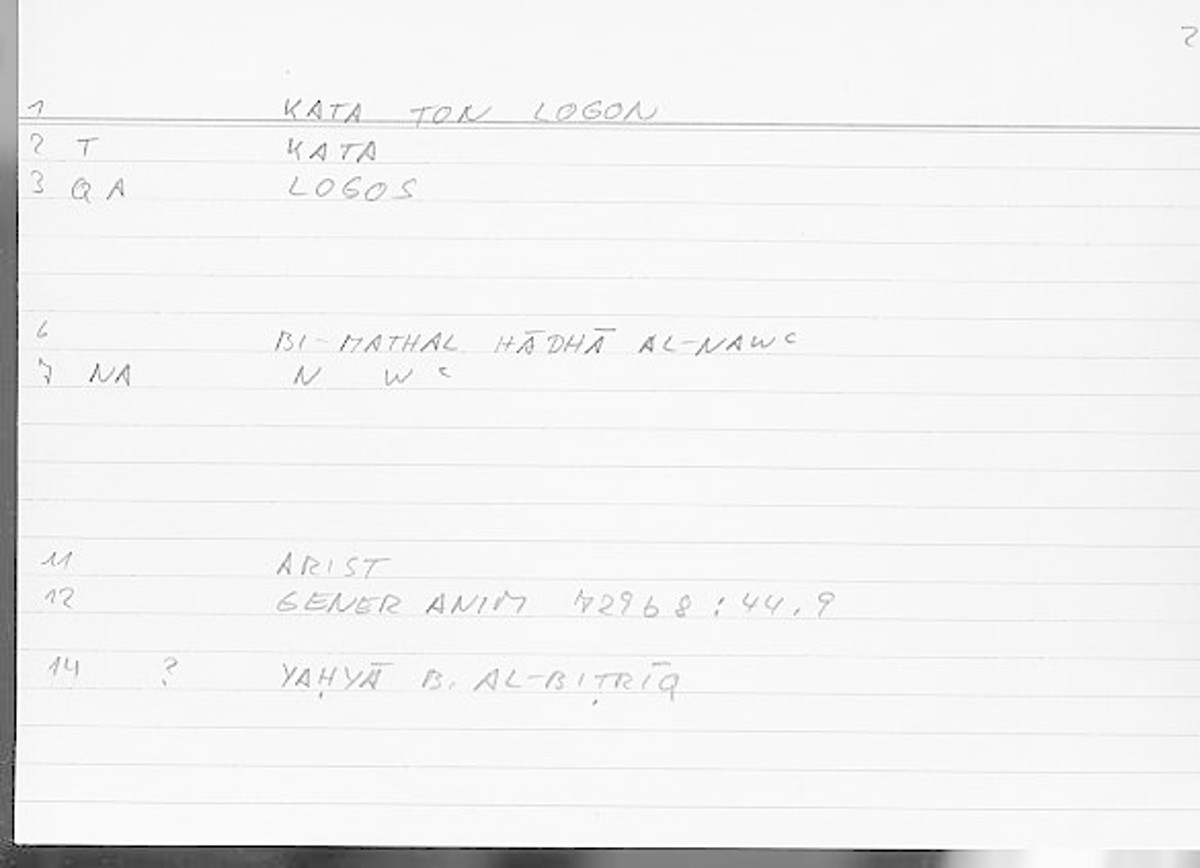 2
1 KATA TON LOGON
2 T KATA
3 QA LOGOS
6 BI-MATHAL HĀDHĀ AL-NAWᶜ
7 NA N W ᶜ
11 ARIST
12 GENER ANIM 729b8:44.9
14 ? YAḤYĀ B. AL-BIṬRĪQ